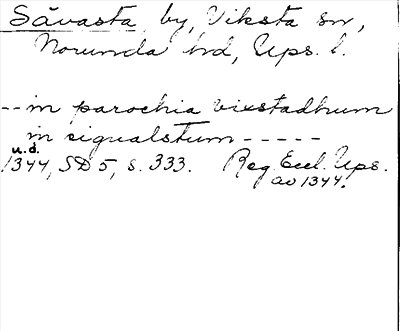 Sävasta by, Viksta sn,
Norunda hd, Ups. l.
-- in parochia vixstadhum
in sigualstum - - - - -
u.d.
1344, SD 5, s. 333. Reg. Eccl. Ups.
av 1344.